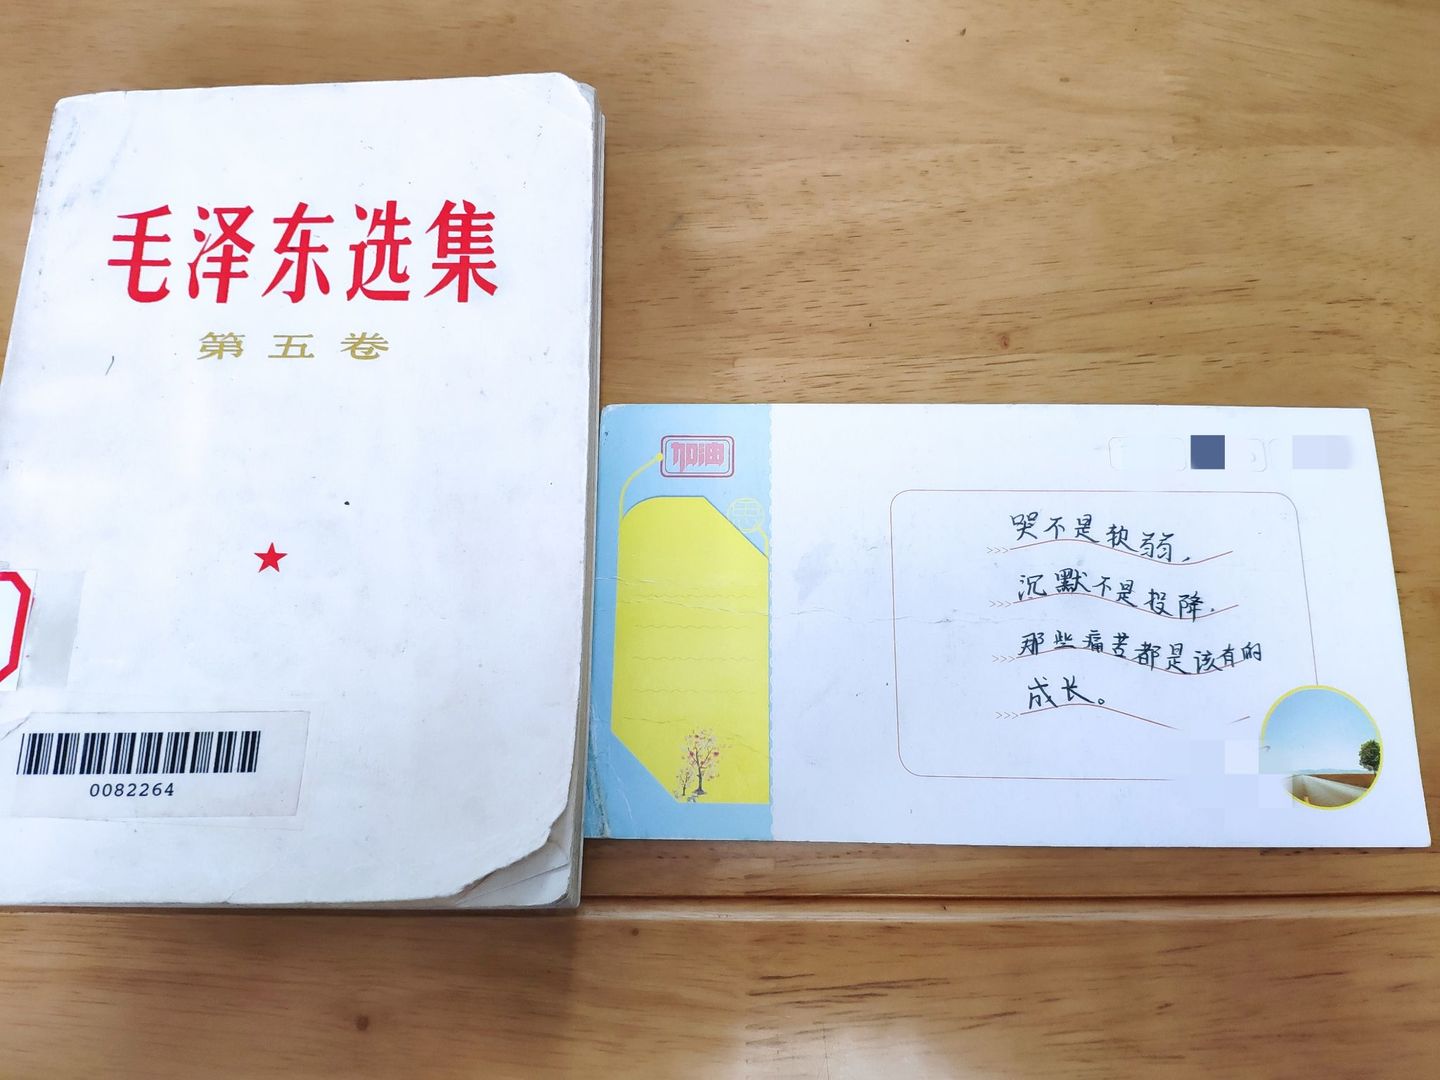 毛泽东选集
第五卷
0082264
加油
哭不是软弱,
沉默不是投降.
那些痛苦都是该有的
成长。